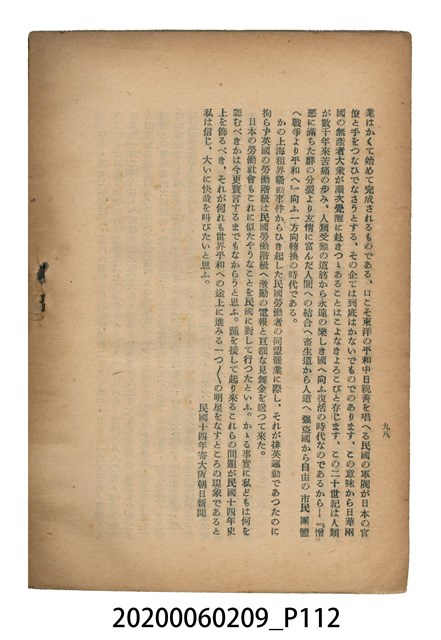 業はかくて始めて完成されるものである、口こそ東洋の平和中日親善を唱へる民國の軍閥が日本の官
僚と手をつないでなさうとする、その企ては到底はかないでものであります、この意味から日華兩
國の無產者大衆が漸次覺醒に赴きつゝあることはこよなきよろこびと存じます、この二十世紀は人類
が數千年來苦痛の歩み、人類受難の道筋から永遠の樂しき國へ向ふ復活の時代なのであるから―『憎
惡に滿ちた群の分裂より友情に富んだ人間への結合へ畜生道から人道へ强盜國から自由の市民團體
へ戰爭より平和へ』向ふ一方向轉換の時代である。
かの上海租界騷動事件からひき起した民國勞働者の同盟罷業に際し、それが排英運動であつたのに
拘らず英國の勞働階級は民國勞働階級へ激勵の電報と巨額な見舞金を送つて來た。
日本の勞働社會もこれに似たやうなことを民國に對して行つたといふ。かゝる事實に私どもは何を
認むべきかは今更贅言するまでもなからうと思ふ。踵を接して起り來るこれらの問題が民國十四年史
上を飾るべき、それが何れも世界平和への途上に進みる一つ〱の明星をなすところの現象であると
私は信じ、大いに快哉を叫びたいと思ふ。
民國十四年寄大阪朝日新聞
九八
20200060209_P112